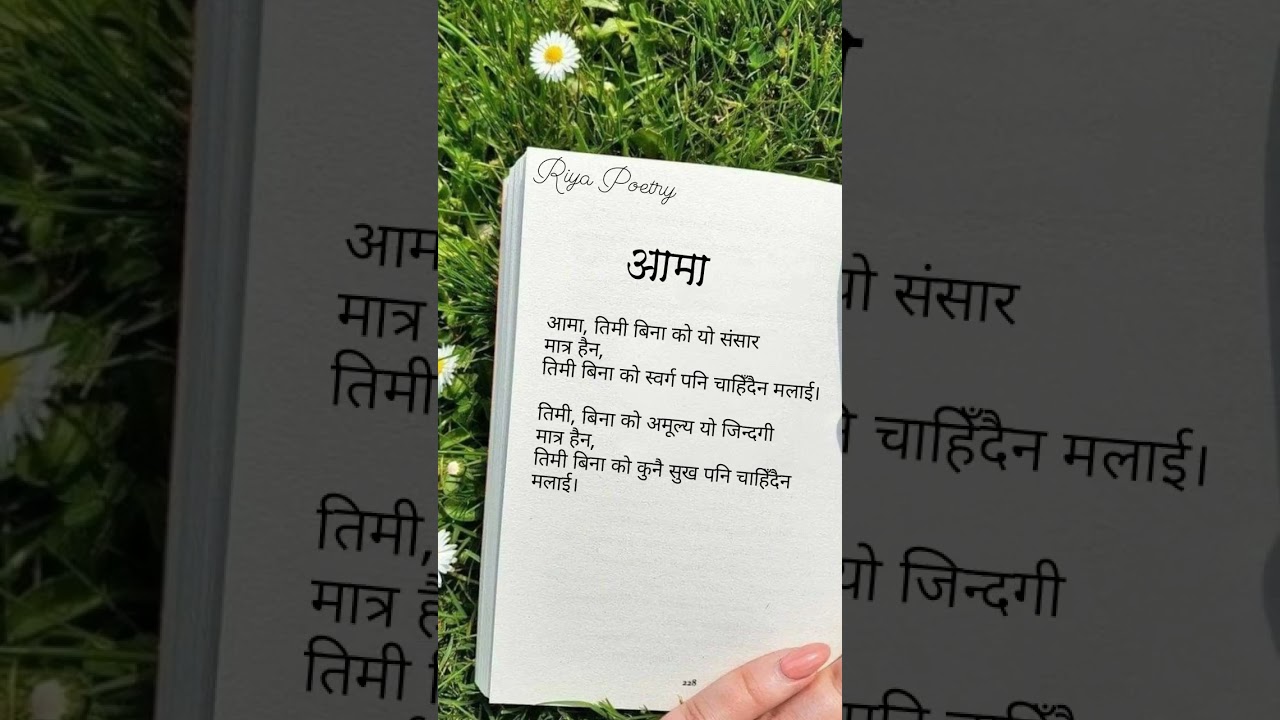 Riya Poetry
आमा
आमा, तिमी बिना को यो संसार
मात्र हैन,
तिमी बिना को स्वर्ग पनि चाहिँदैन मलाई।
तिमी, बिना को अमूल्य यो जिन्दगी
मात्र हैन,
तिमी बिना को कुनै सुख पनि चाहिँदैन
मलाई।
228